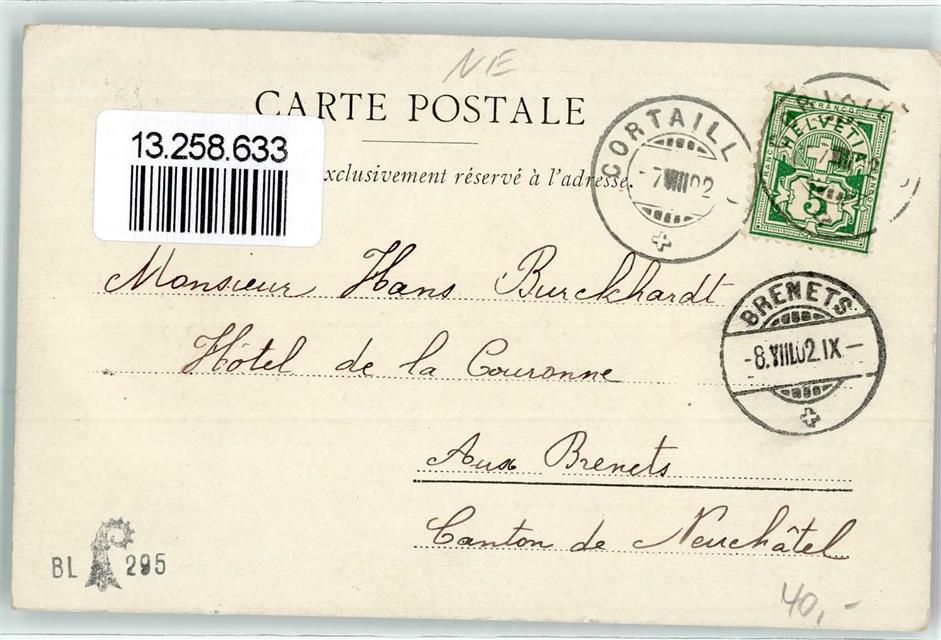 NE
CARTE POSTALE
13.258.633
xclusivement réservé à l'adresse.
CORTAILL
-7 VIII 02
FRANCO
HELVETIA
5
BRENETS
-8.VIII.02.IX-
Monsieur Hans Burckhardt
Hôtel de la Couronne
Aux Brenets
Canton de Neuchâtel
BL 295
40,-